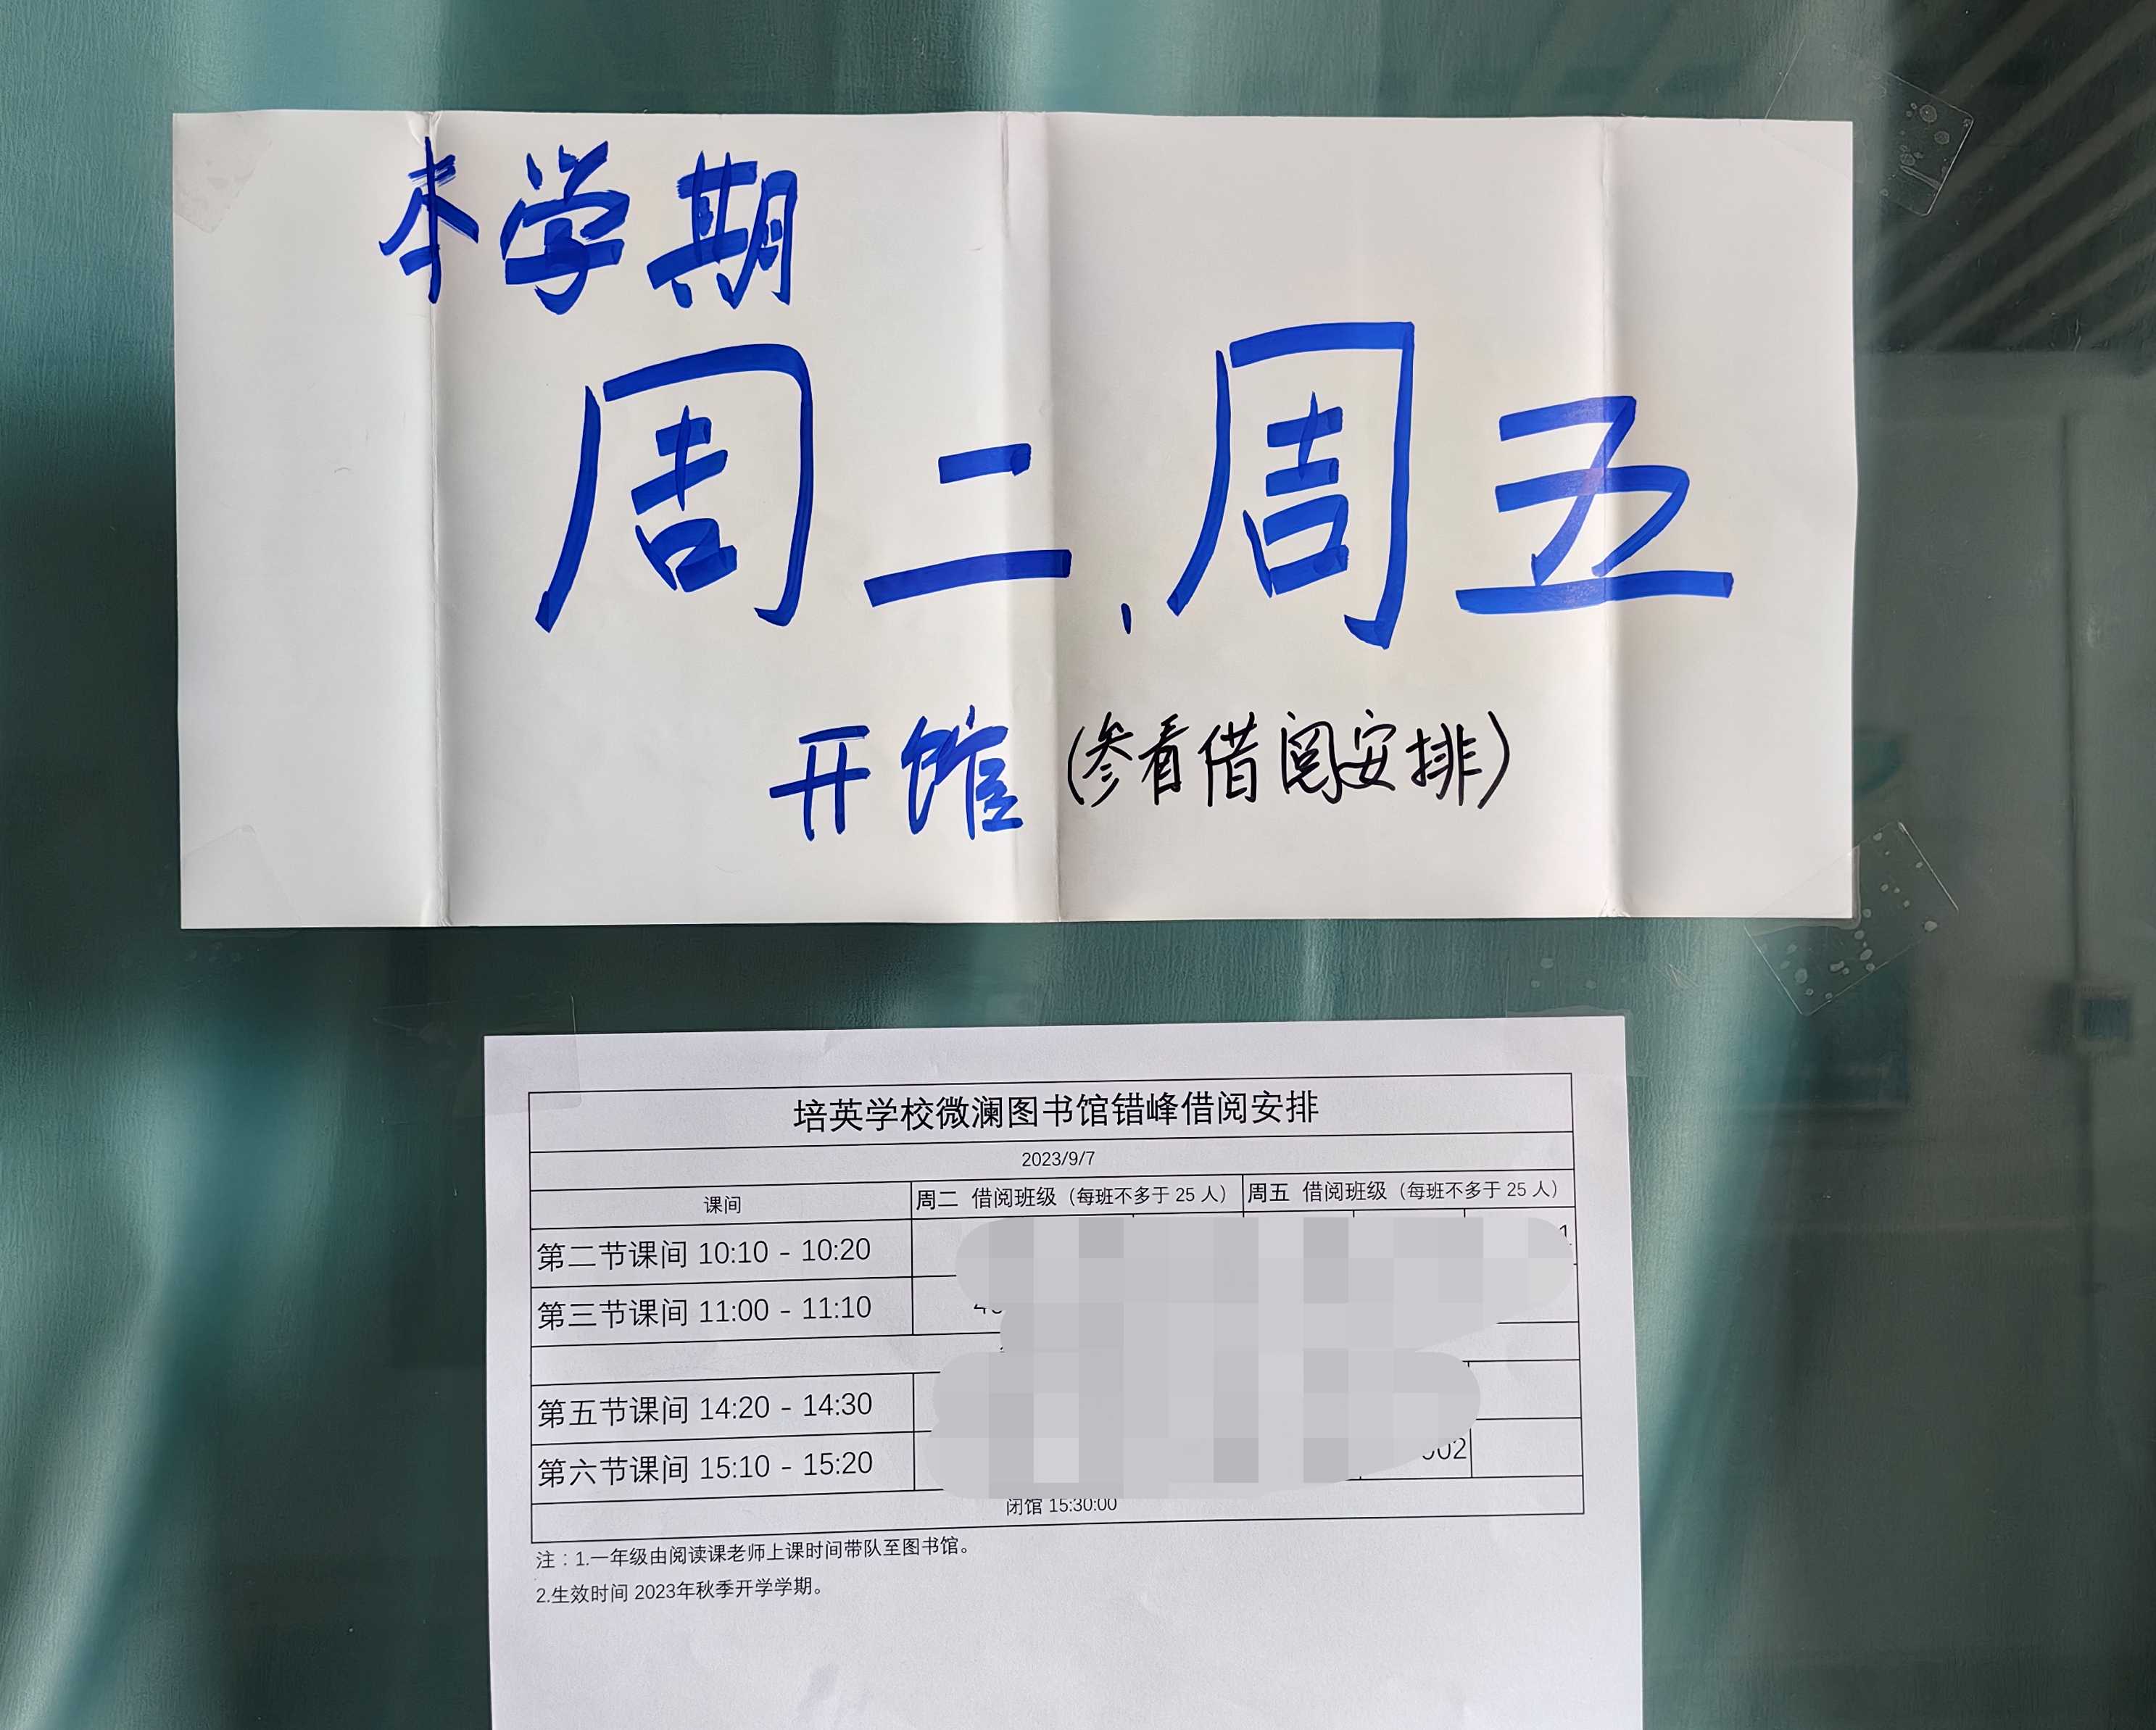 本学期
周二、周五
开馆(参看借阅安排)
培英学校微澜图书馆错峰借阅安排
2023/9/7
课间 周二 借阅班级（每班不多于 25 人） 周五 借阅班级（每班不多于 25 人）
第二节课间 10:10 - 10:20
第三节课间 11:00 - 11:10
第五节课间 14:20 - 14:30
第六节课间 15:10 - 15:20
闭馆 15:30:00
注：1.一年级由阅读课老师上课时间带队至图书馆。
2.生效时间 2023年秋季开学学期。